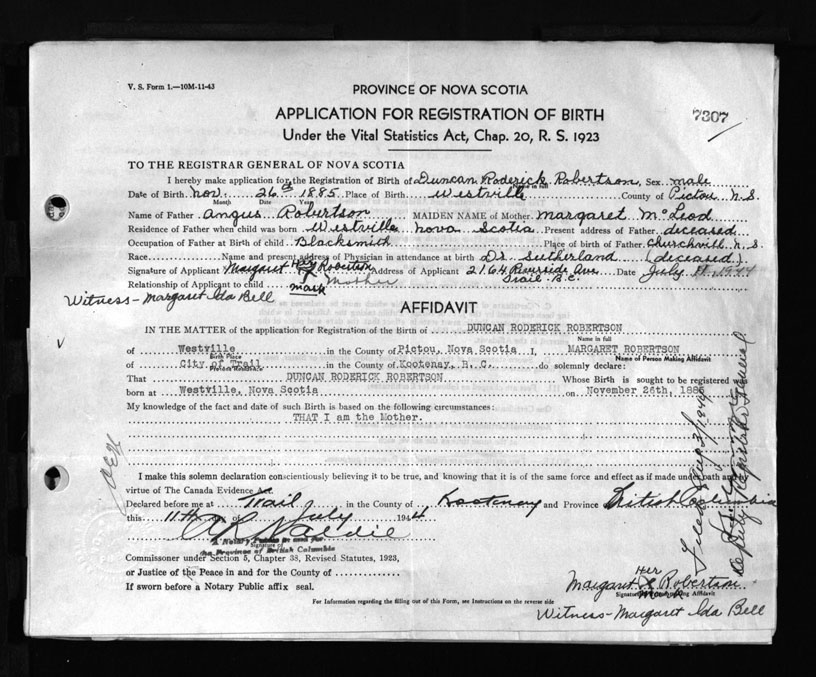 V. S. Form 1.—10M-11-43
PROVINCE OF NOVA SCOTIA
APPLICATION FOR REGISTRATION OF BIRTH
7307
Under the Vital Statistics Act, Chap. 20, R. S. 1923
TO THE REGISTRAR GENERAL OF NOVA SCOTIA
I hereby make application for the Registration of Birth of Duncan Roderick Robertson, Sex male
Name in full
Date of Birth Nov. 26th 1885 Place of Birth Westville County of Pictou N.S.
Month Date Year
Name of Father Angus Robertson MAIDEN NAME of Mother Margaret McLeod
Residence of Father when child was born Westville Nova Scotia Present address of Father deceased
Occupation of Father at Birth of child Blacksmith Place of birth of Father Churchville N.S.
Race Name and present address of Physician in attendance at birth Dr. Sutherland (deceased)
Signature of Applicant Margaret Her X Robertson Address of Applicant 2164 Riverside Ave Date July 11, 1944
mark Trail B.C.
Relationship of Applicant to child Mother
Witness - Margaret Ida Bell
AFFIDAVIT
IN THE MATTER of the application for Registration of the Birth of DUNCAN RODERICK ROBERTSON
Name in full
of Westville in the County of Pictou, Nova Scotia I, MARGARET ROBERTSON
Birth Place Name of Person Making Affidavit
of City of Trail in the County of Kootenay, B. C. do solemnly declare:
Present Residence
That DUNCAN RODERICK ROBERTSON Whose Birth is sought to be registered was
born at Westville, Nova Scotia on November 26th, 1885
My knowledge of the fact and date of such Birth is based on the following circumstances:
THAT I am the Mother.
I make this solemn declaration conscientiously believing it to be true, and knowing that it is of the same force and effect as if made under oath and
virtue of The Canada Evidence Act.
Declared before me at Trail in the County of Kootenay and Province British Columbia
this 11th day of July 1944
A Notary Public in and for
Signature of
the Province of British Columbia
Commissoner under Section 5, Chapter 38, Revised Statutes, 1923,
or Justice of the Peace in and for the County of
If sworn before a Notary Public affix seal.
Her
Margaret X Robertson
Mark
Signature of Person Making Affidavit
For Information regarding the filling out of this Form, see Instructions on the reverse side
Witness - Margaret Ida Bell
Filed Aug 3/1944
Deputy Registrar General